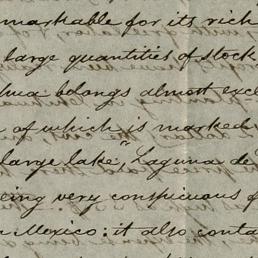 markable for its rich
large quantities of stock
hua belongs almost excl
of which is marked
large lake, "Laguna de
eing very conspicuous f
Mexico: it also conta